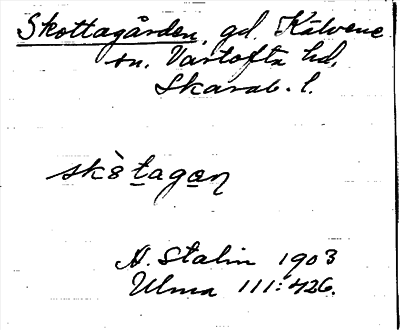 Skottagården, gd. Kälvene
sn. Vartofta hd,
Skarab. l.
skòtagaɲ
A. Stalin 1903
Ulma 111:426.